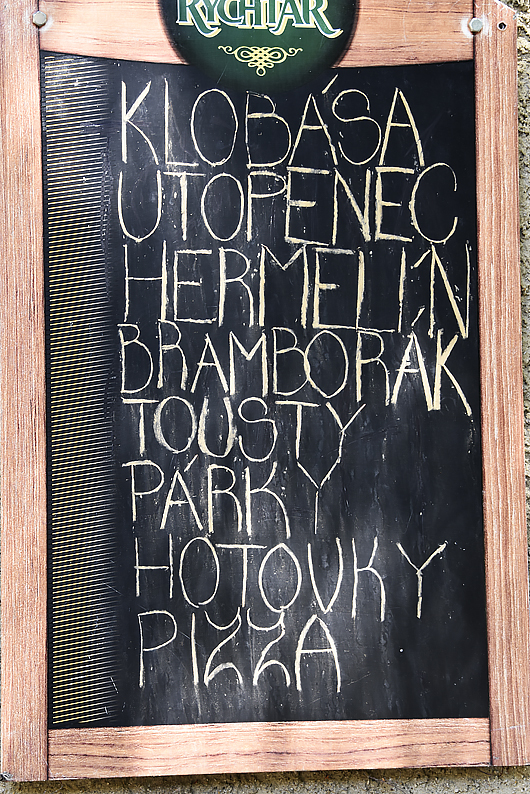 RYCHTÁŘ
KLOBÁSA
UTOPENEC
HERMELÍN
BRAMBORÁK
TOUSTY
PÁRKY
HOTOVKY
PIZZA